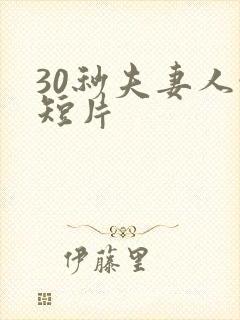 30秒夫妻人
短片
伊藤里